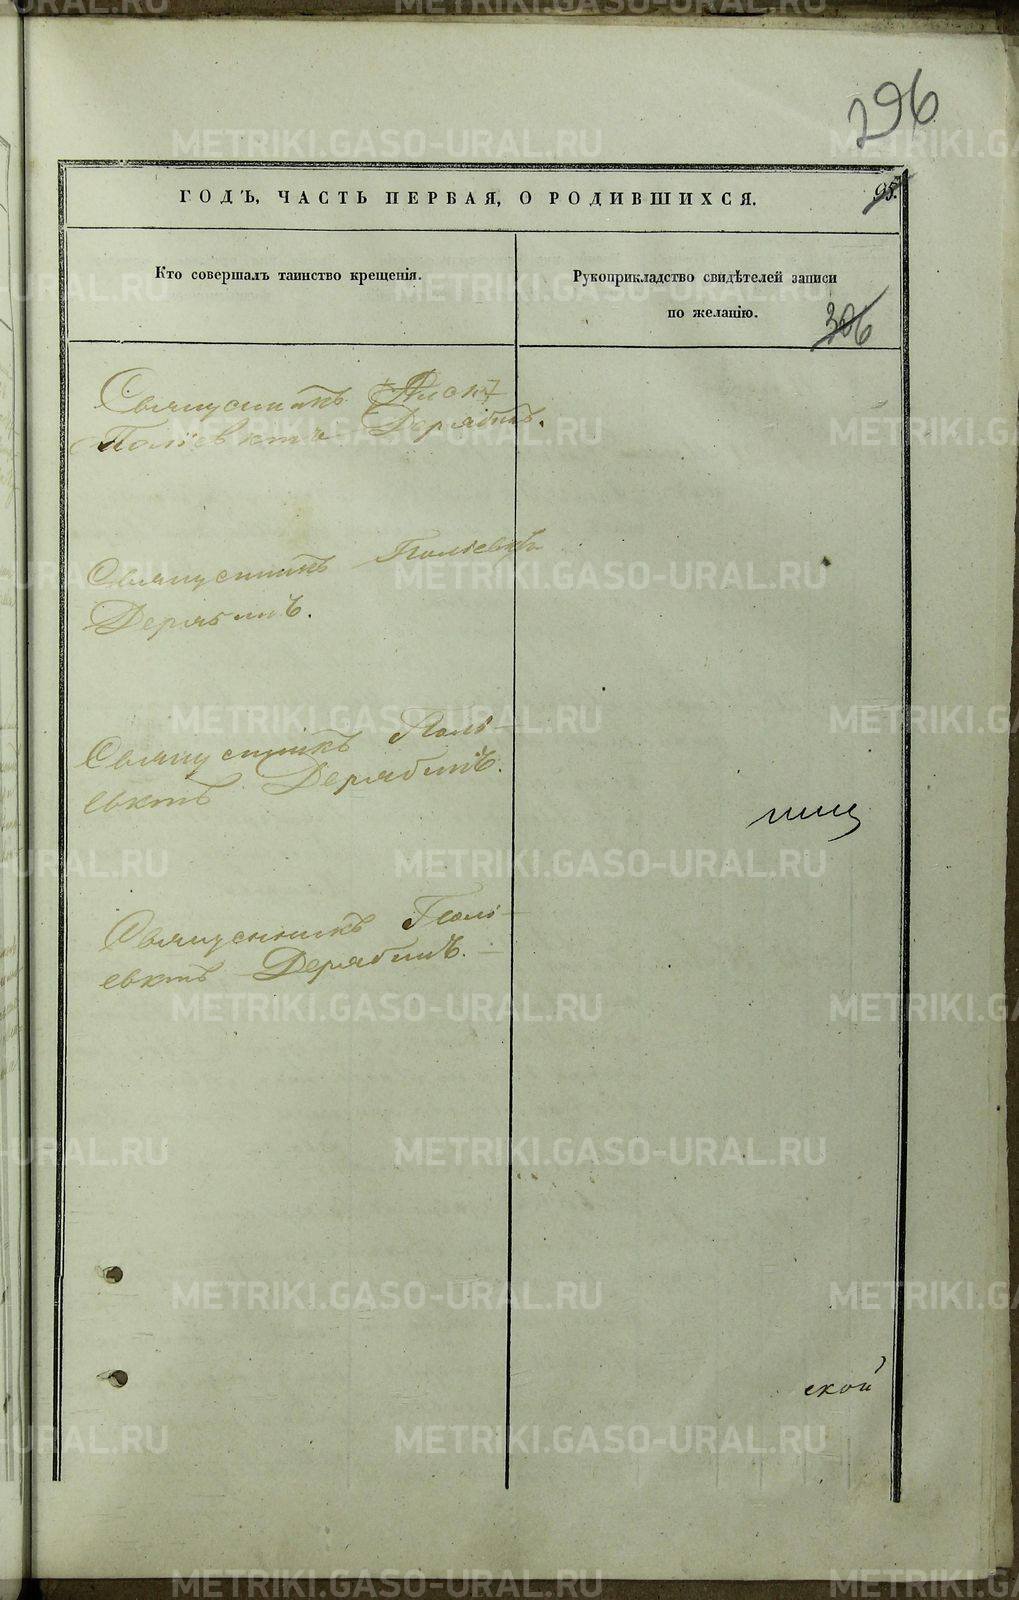 296
ГОДЪ, ЧАСТЬ ПЕРВАЯ, О РОДИВШИХСЯ.
95.
Кто совершалъ таинство крещенія.
Рукоприкладство свидѣтелей записи
по желанію.
306
Священникъ
Поліевктъ Дерябинъ.
Священникъ Поліевктъ
Дерябинъ.
Священникъ Полі-
евктъ Дерябинъ.
Священникъ Полі-
евктъ Дерябинъ.
ской
METRIKI.GASO-URAL.RU